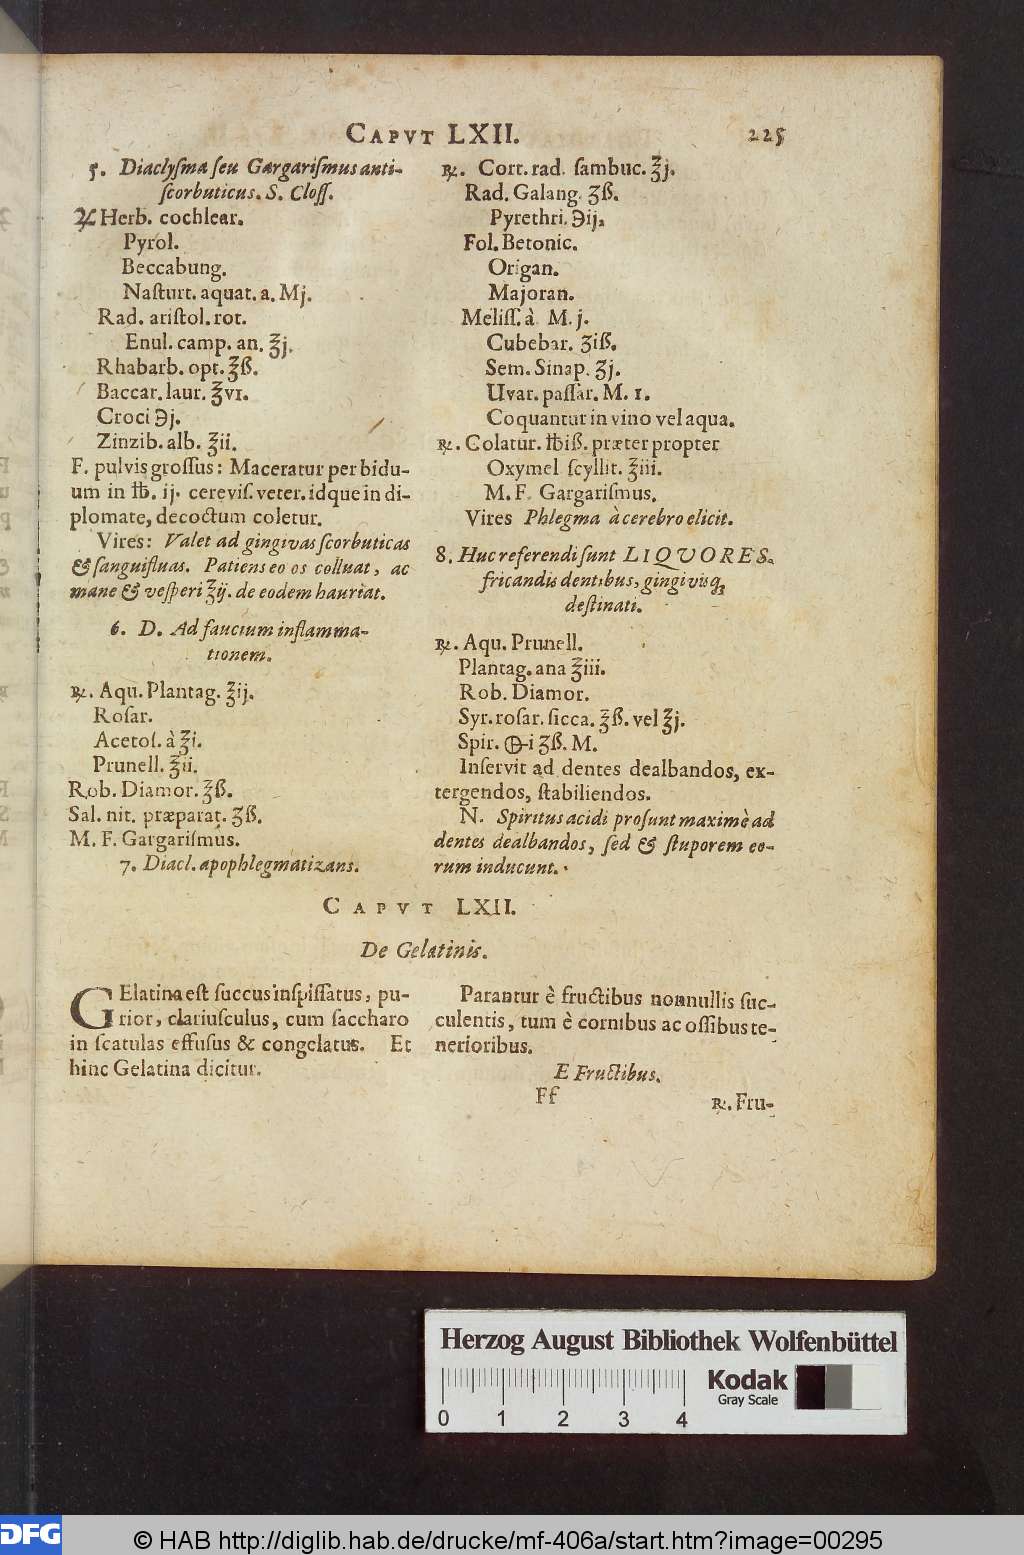 CAPVT LXII. 225
5. Diaclyſma ſeu Gargariſmus anti-
ſcorbuticus. S. Cloſſ.
♃ Herb. cochlear.
Pyrol.
Beccabung.
Naſturt. aquat. a. Mj.
Rad. ariſtol. rot.
Enul. camp. an. ℥j.
Rhabarb. opt. ℥ß.
Baccar. laur. ℥vı.
Croci ℈j.
Zinzib. alb. ℥ii.
F. pulvis groſſus: Maceratur per bidu-
um in ℔. ij. cereviſ. veter. idque in di-
plomate, decoctum coletur.
Vires: Valet ad gingivas ſcorbuticas
& ſanguifluas. Patiens eo os colluat, ac
mane & veſperi ℥ij. de eodem hauriat.
6. D. Ad faucium inflamma-
tionem.
℞. Aqu. Plantag. ℥ij.
Roſar.
Acetoſ. à ℥i.
Prunell. ℥ii.
Rob. Diamor. ℥ß.
Sal. nit. præparat. ʒß.
M. F. Gargariſmus.
7. Diacl. apophlegmatizans.
℞. Cort. rad. ſambuc. ℥j.
Rad. Galang. ʒß.
Pyrethri. ℈ij.
Fol. Betonic.
Origan.
Majoran.
Meliſſ. à M. j.
Cubebar. ʒiß.
Sem. Sinap. ʒj.
Uvar. paſſar. M. ı.
Coquantur in vino vel aqua.
℞. Colatur. ℔iß. præter propter
Oxymel ſcyllit. ℥iii.
M. F. Gargariſmus.
Vires Phlegma à cerebro elicit.
8. Huc referendi ſunt LIQVORES.
fricandis dentibus, gingivisq;
deſtinati.
℞. Aqu. Prunell.
Plantag. ana ℥iii.
Rob. Diamor.
Syr. roſar. ſicca. ℥ß. vel ℥j.
Spir. i ʒß. M.
Inſervit ad dentes dealbandos, ex-
tergendos, ſtabiliendos.
N. Spiritus acidi proſunt maximè ad
dentes dealbandos, ſed & ſtuporem eo-
rum inducunt.
CAPVT LXII.
De Gelatinis.
GElatina eſt ſuccus inſpiſſatus, pu-
rior, clariuſculus, cum ſaccharo
in ſcatulas effuſus & congelatus. Et
hinc Gelatina dicitur.
Parantur è fructibus nonnullis ſuc-
culentis, tum è cornibus ac oſſibus te-
nerioribus.
E Fructibus.
Ff
℞. Fru-
Herzog August Bibliothek Wolfenbüttel
0 1 2 3 4
Kodak
Gray Scale
DFG
© HAB http://diglib.hab.de/drucke/mf-406a/start.htm?image=00295